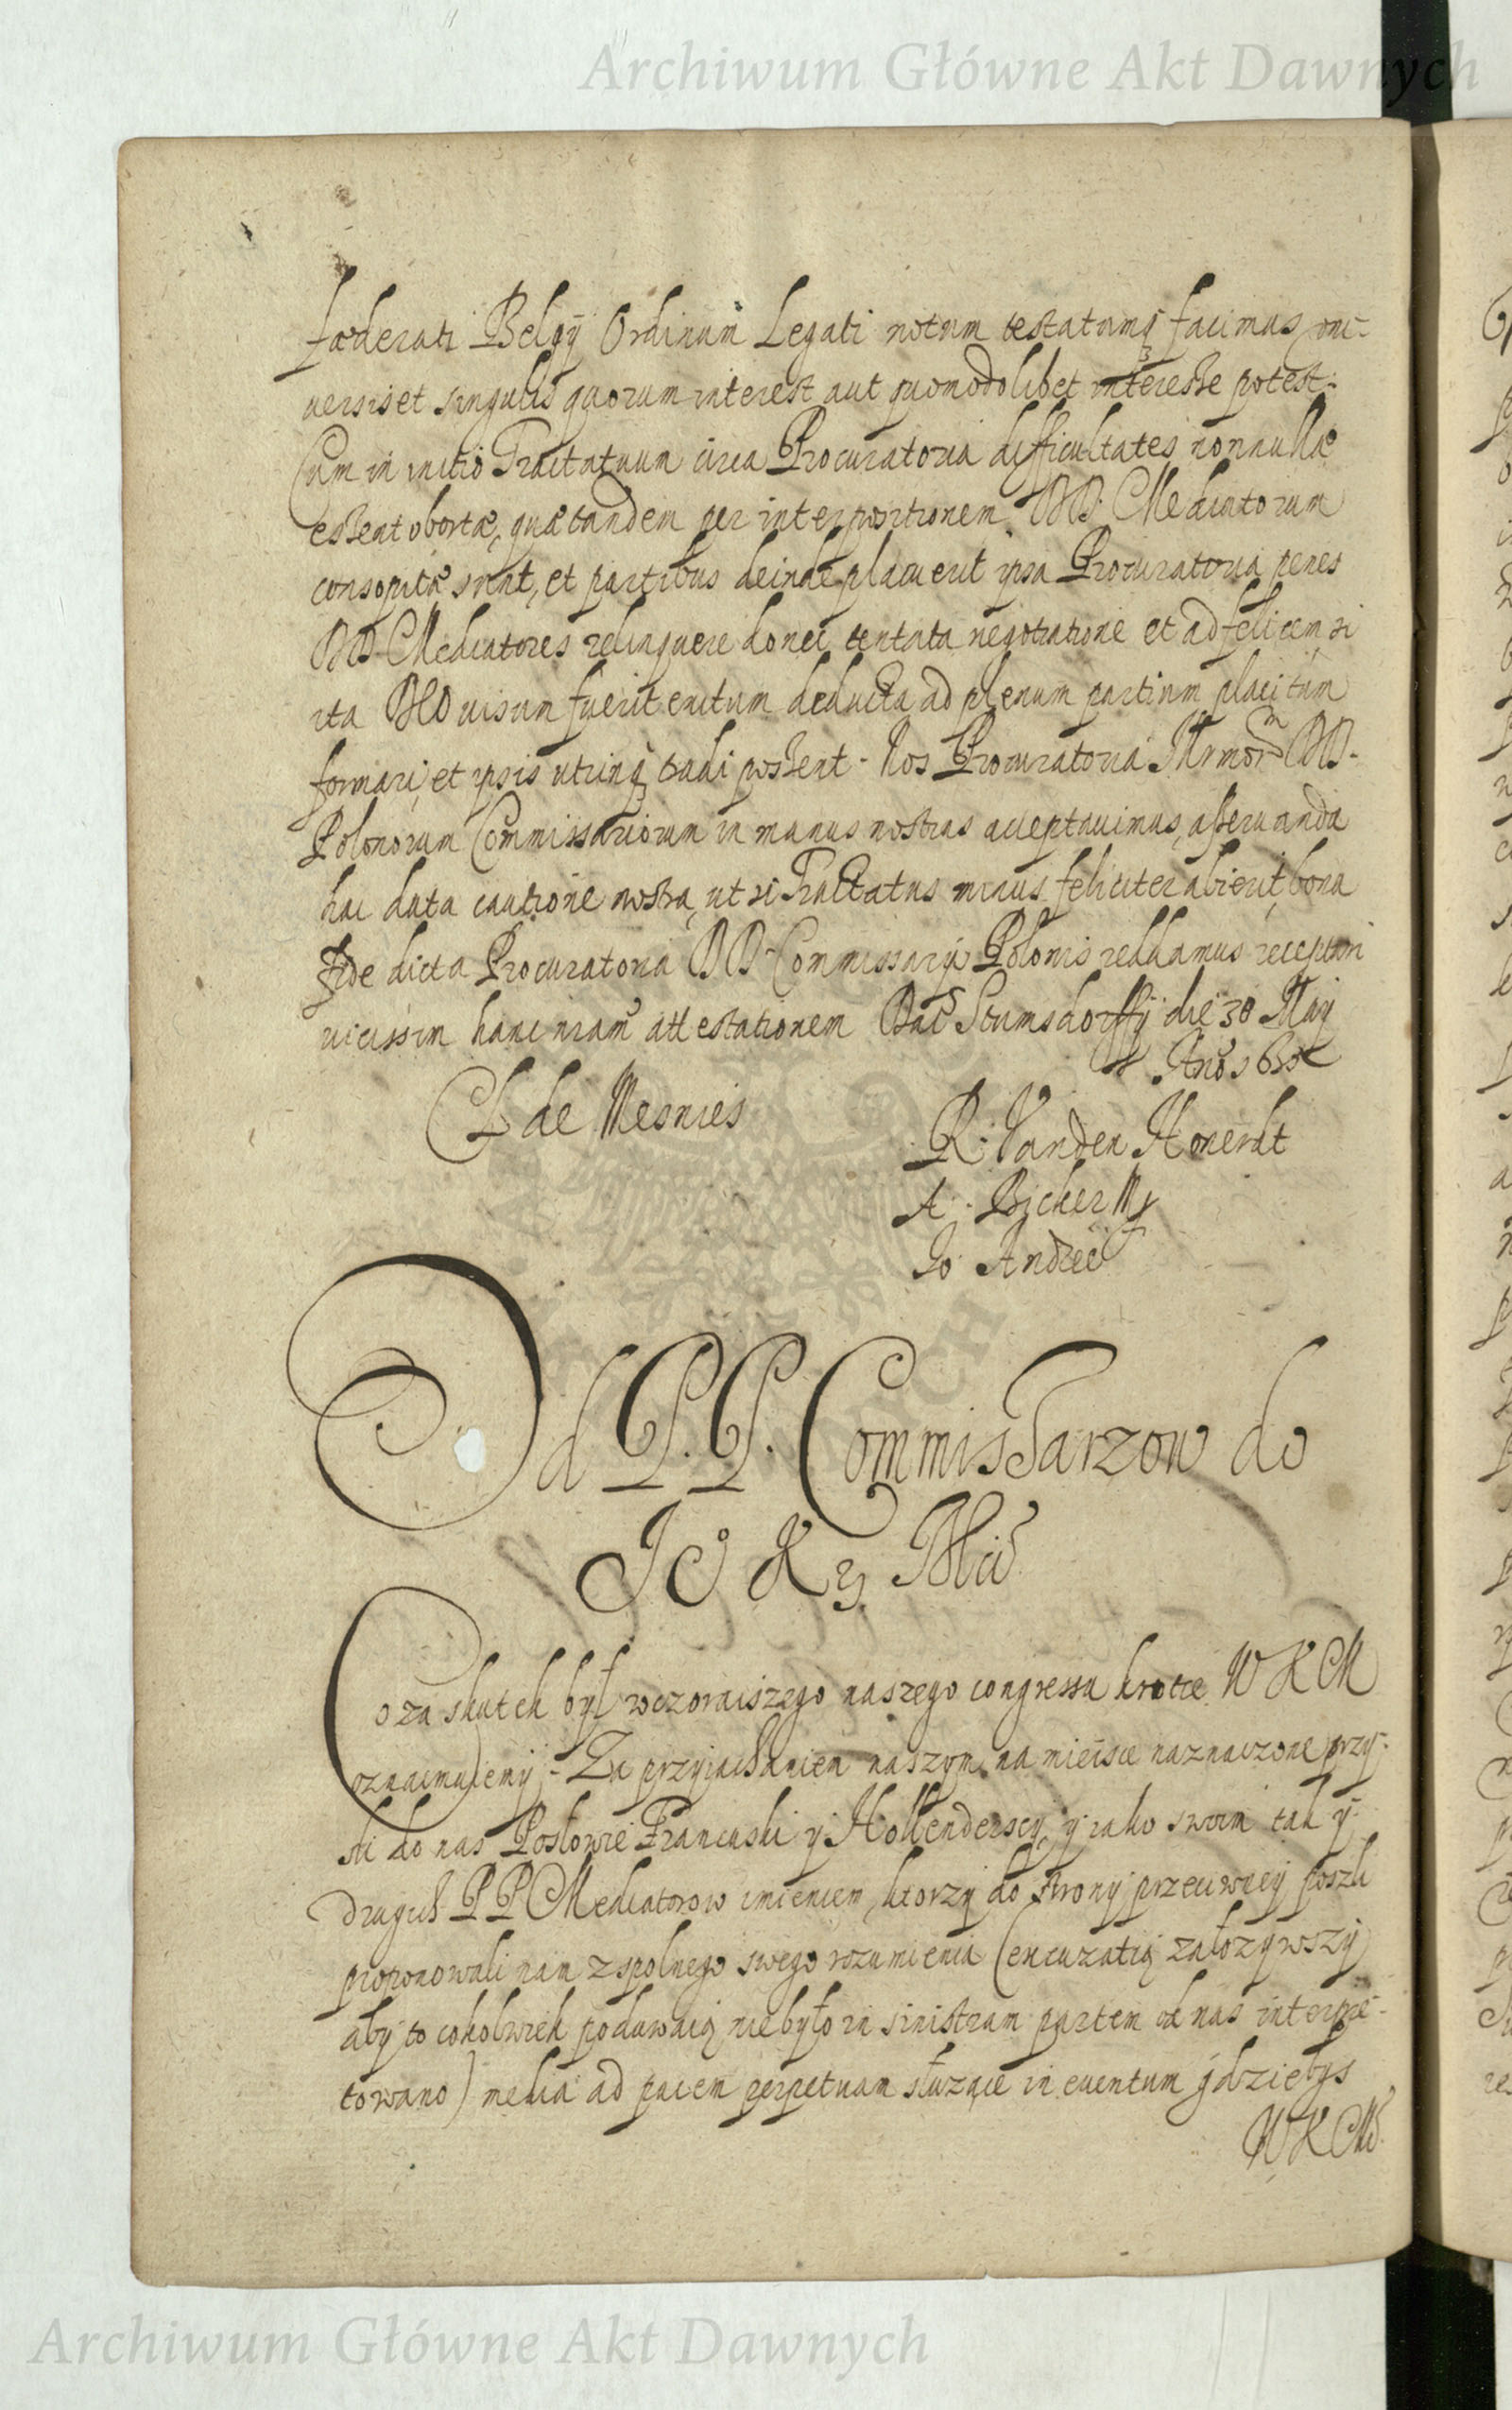 Archiwum Główne Akt Dawnych
fœderati Belgÿ Ordinum Legati notum testatumq facimus uni-
versis et singulis quorum interest aut quomodolibet interesse potest.
Cum in initio Tractatuum circa Procuratoria difficultates nonnullæ
essent obortæ, quæ tandem per interpositionem DD. Mediatorum
consopitæ sunt, et partibus deinde placuerit ipsa Procuratoria penes
DD. Mediatores relinquere donec tentata negotiatione et ad felicem si
ita DEO visum fuerit exitum deducta ad plenum partium placitum
formari, et ipsis utrinq tradi possent. Nos Procuratoria Illrmorm DD.
Polonorum Commissariorum in manus nostras acceptavimus, asservanda
hac data cautione nostra, ut si Tractatus minus feliciter abierit, bona
fide dicta Procuratoria DD. Commissarijs Polonis reddamus recepturi
vicissim hanc nram attestationem Dat Stumsdorffÿ die 30 Maÿ
Ano 1635
Cl de Mesmes
R. Vanden Honerdt
A. Bicker
Jo Andree
Od P. P. Commissarzow do
Je° K Mci
Co za skutek był wczoraiszego naszego congressu krotce W K M
oznaimuiemÿ. Za przyjachaniem naszym na mieisce naznaczone przy-
sli do nas Posłowie Francuski ÿ Hollenderscÿ, ÿ iako swoim tak ÿ
drugich P P Mediatorow imieniem, ktorzÿ do stronÿ przeciwneÿ poszli
proponowali nam z spolnego swego rozumienia (excuzatią założÿwszÿ
abÿ to cokolwiek podawaią nie było in sinistram partem od nas interpre-
towano) media ad pacem perpetuam służące in eventum gdziebys
W K Mć
Archiwum Główne Akt Dawnych